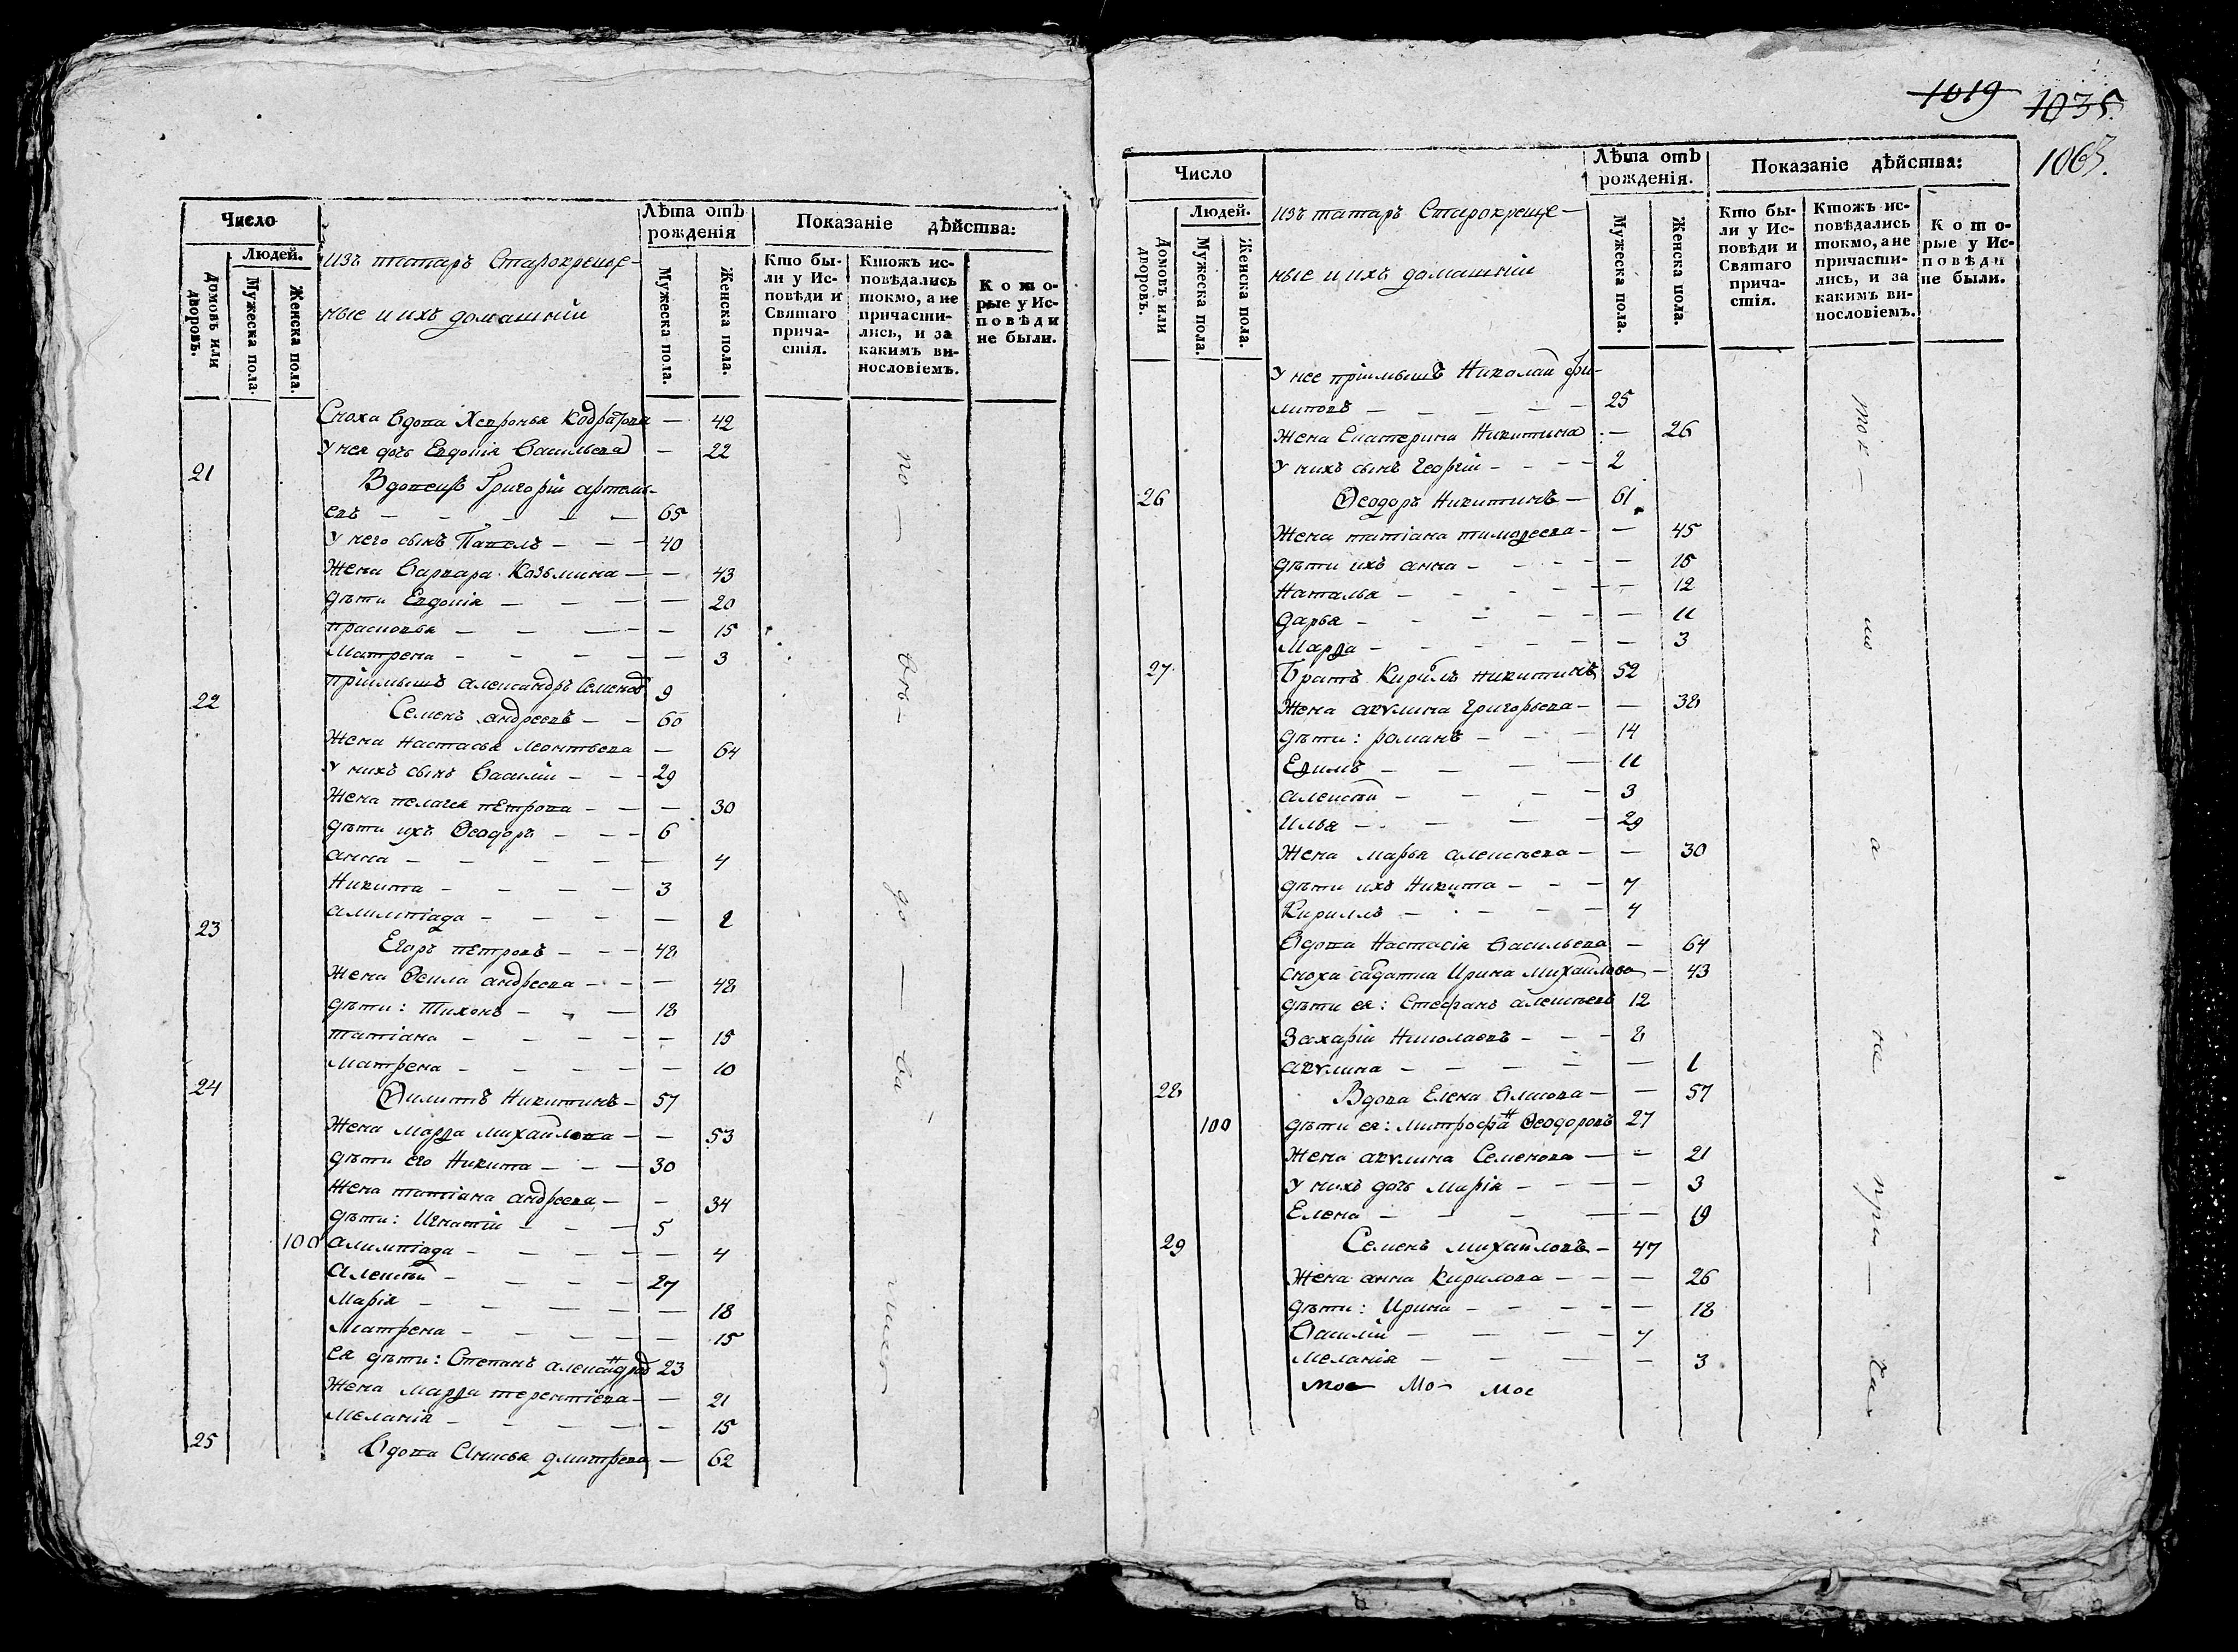 Число
Людей.
Домовъ или дворовъ.
Мужеска пола.
Женска пола.
изъ татаръ Старокреще-
ные и ихъ домашніи
Лѣта отъ рожденія
Мужеска пола.
Женска пола.
Показаніе дѣйства:
Кто бы-
ли у Ис-
повѣди и
Святаго
прича-
стія.
Ктожъ ис-
повѣдались
токмо, а не
причасти-
лись, и за
какимъ ви-
нословіемъ.
К о т о-
рые у Ис-
п о в ѣ д и
не были.
Сноха вдова Хевронья — 42
У нея дочь Евдокія Васильева — 22
21 Вдовецъ Григорій артемь-
евъ — — — — — 65
У него сынъ Павелъ — — — 40
Жена Варвара Козьмина — — 43
дѣти Евдокія — — — — 20
прасковья — — — — 15
Матрена — — — — — 3
пріимышъ александръ Семеновъ 9
22 Семенъ андреевъ — — 60
Жена настасья леонтьева — 64
У нихъ сынъ Василій — — — 29
Жена пелагея петрова — — — 30
дѣти ихъ Ѳеодоръ — — — 6
анна — — — — — 4
Никита — — — — 3
алимпіада — — — — — 2
23 Егоръ петровъ — — — 48
Жена Ѳекла андреева — — — 48
дѣти: Тихонъ — — — 18
татіана — — — — — 15
Матрена — — — — — 10
24 Филиппъ Никитинъ — 57
Жена Марѳа михайлова — — 53
дѣти его Никита — — — 30
Жена татіана андреева — — 34
дѣти: Игнатій — — — 5
100 алимпіада — — — — — 4
алексѣй — — — — 27
Марія — — — — — 18
Матрена — — — — — 15
ея дѣти: Степанъ александровъ 23
Жена Марѳа терентіева — — 21
Меланія — — — — — 15
25 Вдова Анисья дмитрева — 62
по —
до —
1019 1035.
1065.
Число
Людей.
Домовъ или дворовъ.
Мужеска пола.
Женска пола.
изъ татаръ Старокреще-
ные и ихъ домашніи
Лѣта отъ рожденія.
Мужеска пола.
Женска пола.
Показаніе дѣйства:
Кто бы-
ли у Ис-
повѣди и
Святаго
прича-
стія.
Ктожъ ис-
повѣдались
токмо, а не
причасти-
лись, и за
какимъ ви-
нословіемъ.
К о т о-
рые у Ис-
п о в ѣ д и
не были.
У нее пріимышъ Николай фи-
липовъ — — — — — 25
Жена Екатерина Никитина — 26
У нихъ сынъ Георгій — — — 2
26 Ѳеодоръ Никитинъ — 61
Жена татіана тимоѳеева — — 45
дѣти ихъ анна — — — — — 15
Наталья — — — — — 12
дарья — — — — — 11
Марѳа — — — — — — 3
27 Братъ Кирилъ никитинъ 52
Жена акулина григорьева — — 38
дѣти: романъ — — — 14
Ефимъ — — — — 11
алексѣй — — — — 3
Илья — — — — 29
Жена марья алексѣева — — 30
дѣти ихъ Никита — — — 7
Кириллъ — — — — 4
Вдова Настасія Васильева — 64
Сноха солдатка Ирина Михайлова — 43
дѣти ея: Стефанъ алексѣевъ 12
Захарій Николаевъ — — — 8
акулина — — — — — 1
28 Вдова Елена — — 57
100 дѣти ея: митрофанъ Ѳеодоровъ 27
Жена акулина Семенова — — 21
У нихъ дочь марія — — — — 3
Елена — — — — — 19
29 Семенъ михайловъ — 47
Жена анна Кирилова — — — 26
дѣти: Ирина — — — — — 18
Василій — — — — 7
меланія — — — — 3
ток —
мо
а
не
при —